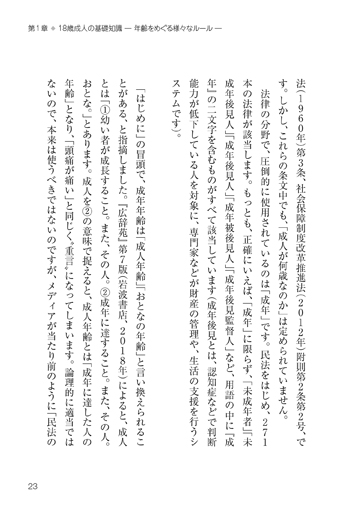 第1章 ● 18歳成人の基礎知識 ― 年齢をめぐる様々なルール ―
法(1960年)第3条、社会保障制度改革推進法(2012年)附則第2条第2号、で
す。しかし、これらの条文中でも、「成人が何歳なのか」は定められていません。
法律の分野で、圧倒的に使用されているのは「成年」です。民法をはじめ、271
本の法律が該当します。もっとも、正確にいえば、「成年」に限らず、「未成年者」「未
成年後見人」「成年後見人」「成年被後見人」「成年後見監督人」など、用語の中に『成
年』の二文字を含むものがすべて該当しています(成年後見とは、認知症などで判断
能力が低下している人を対象に、専門家などが財産の管理や、生活の支援を行うシ
ステムです)。
「はじめに」の冒頭で、成年年齢は「成人年齢」「おとなの年齢」と言い換えられるこ
とがある、と指摘しました。『広辞苑』第7版(岩波書店、2018年)によると、成人
とは「①幼い者が成長すること。また、その人。②成年に達すること。また、その人。
おとな。」とあります。成人を②の意味で捉えると、成人年齢とは「成年に達した人の
年齢」となり、「頭痛が痛い」と同じく〝重言〟になってしまいます。論理的に適当では
ないので、本来は使うべきではないのですが、メディアが当たり前のように「民法の
23